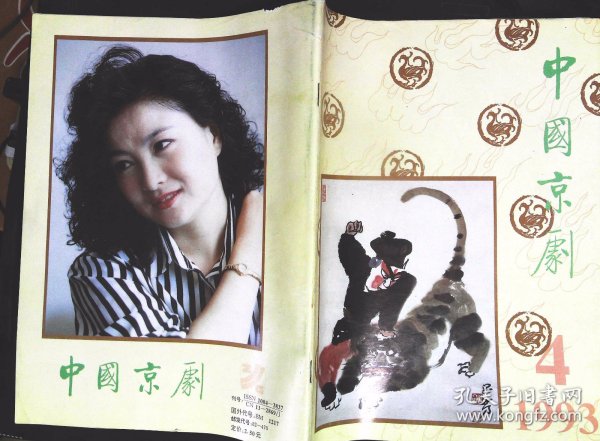 中國京劇
刊号:
ISSN 1004-3837
CN 11-2869/J
国外代号:BM 1237
邮发代号:82-475
定价:2.50元
中
國
京
劇
4
1993
孔夫子旧书网
www.kongfz.com